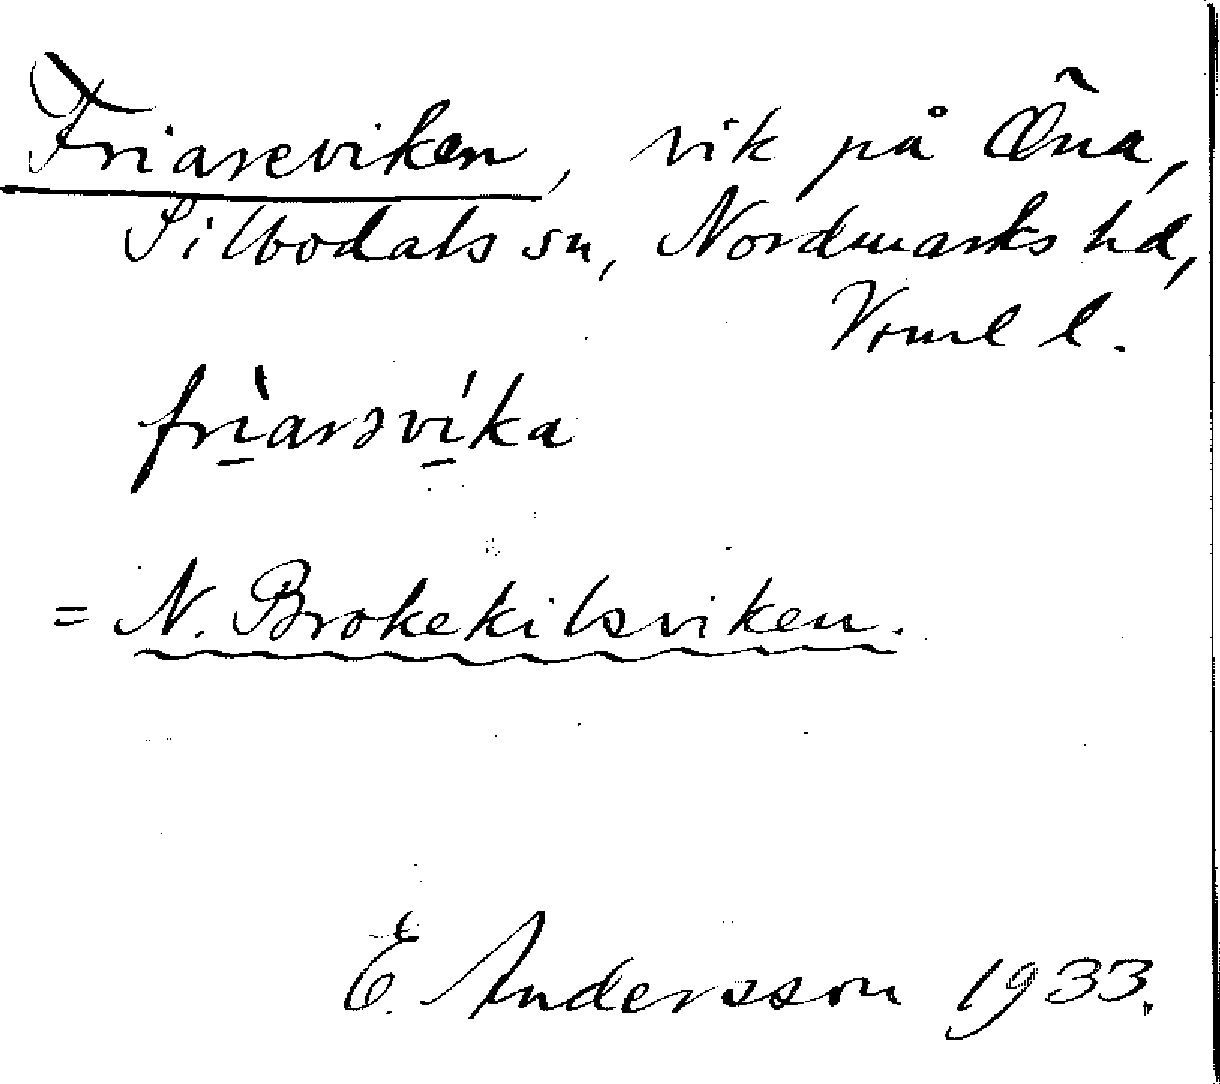 Friareviken, vik på Öna,
Silbodals sn, Nordmarks hd,
Vrml l.
frìarəvíka
= N. Brokekilsviken.
E. Andersson 1933.